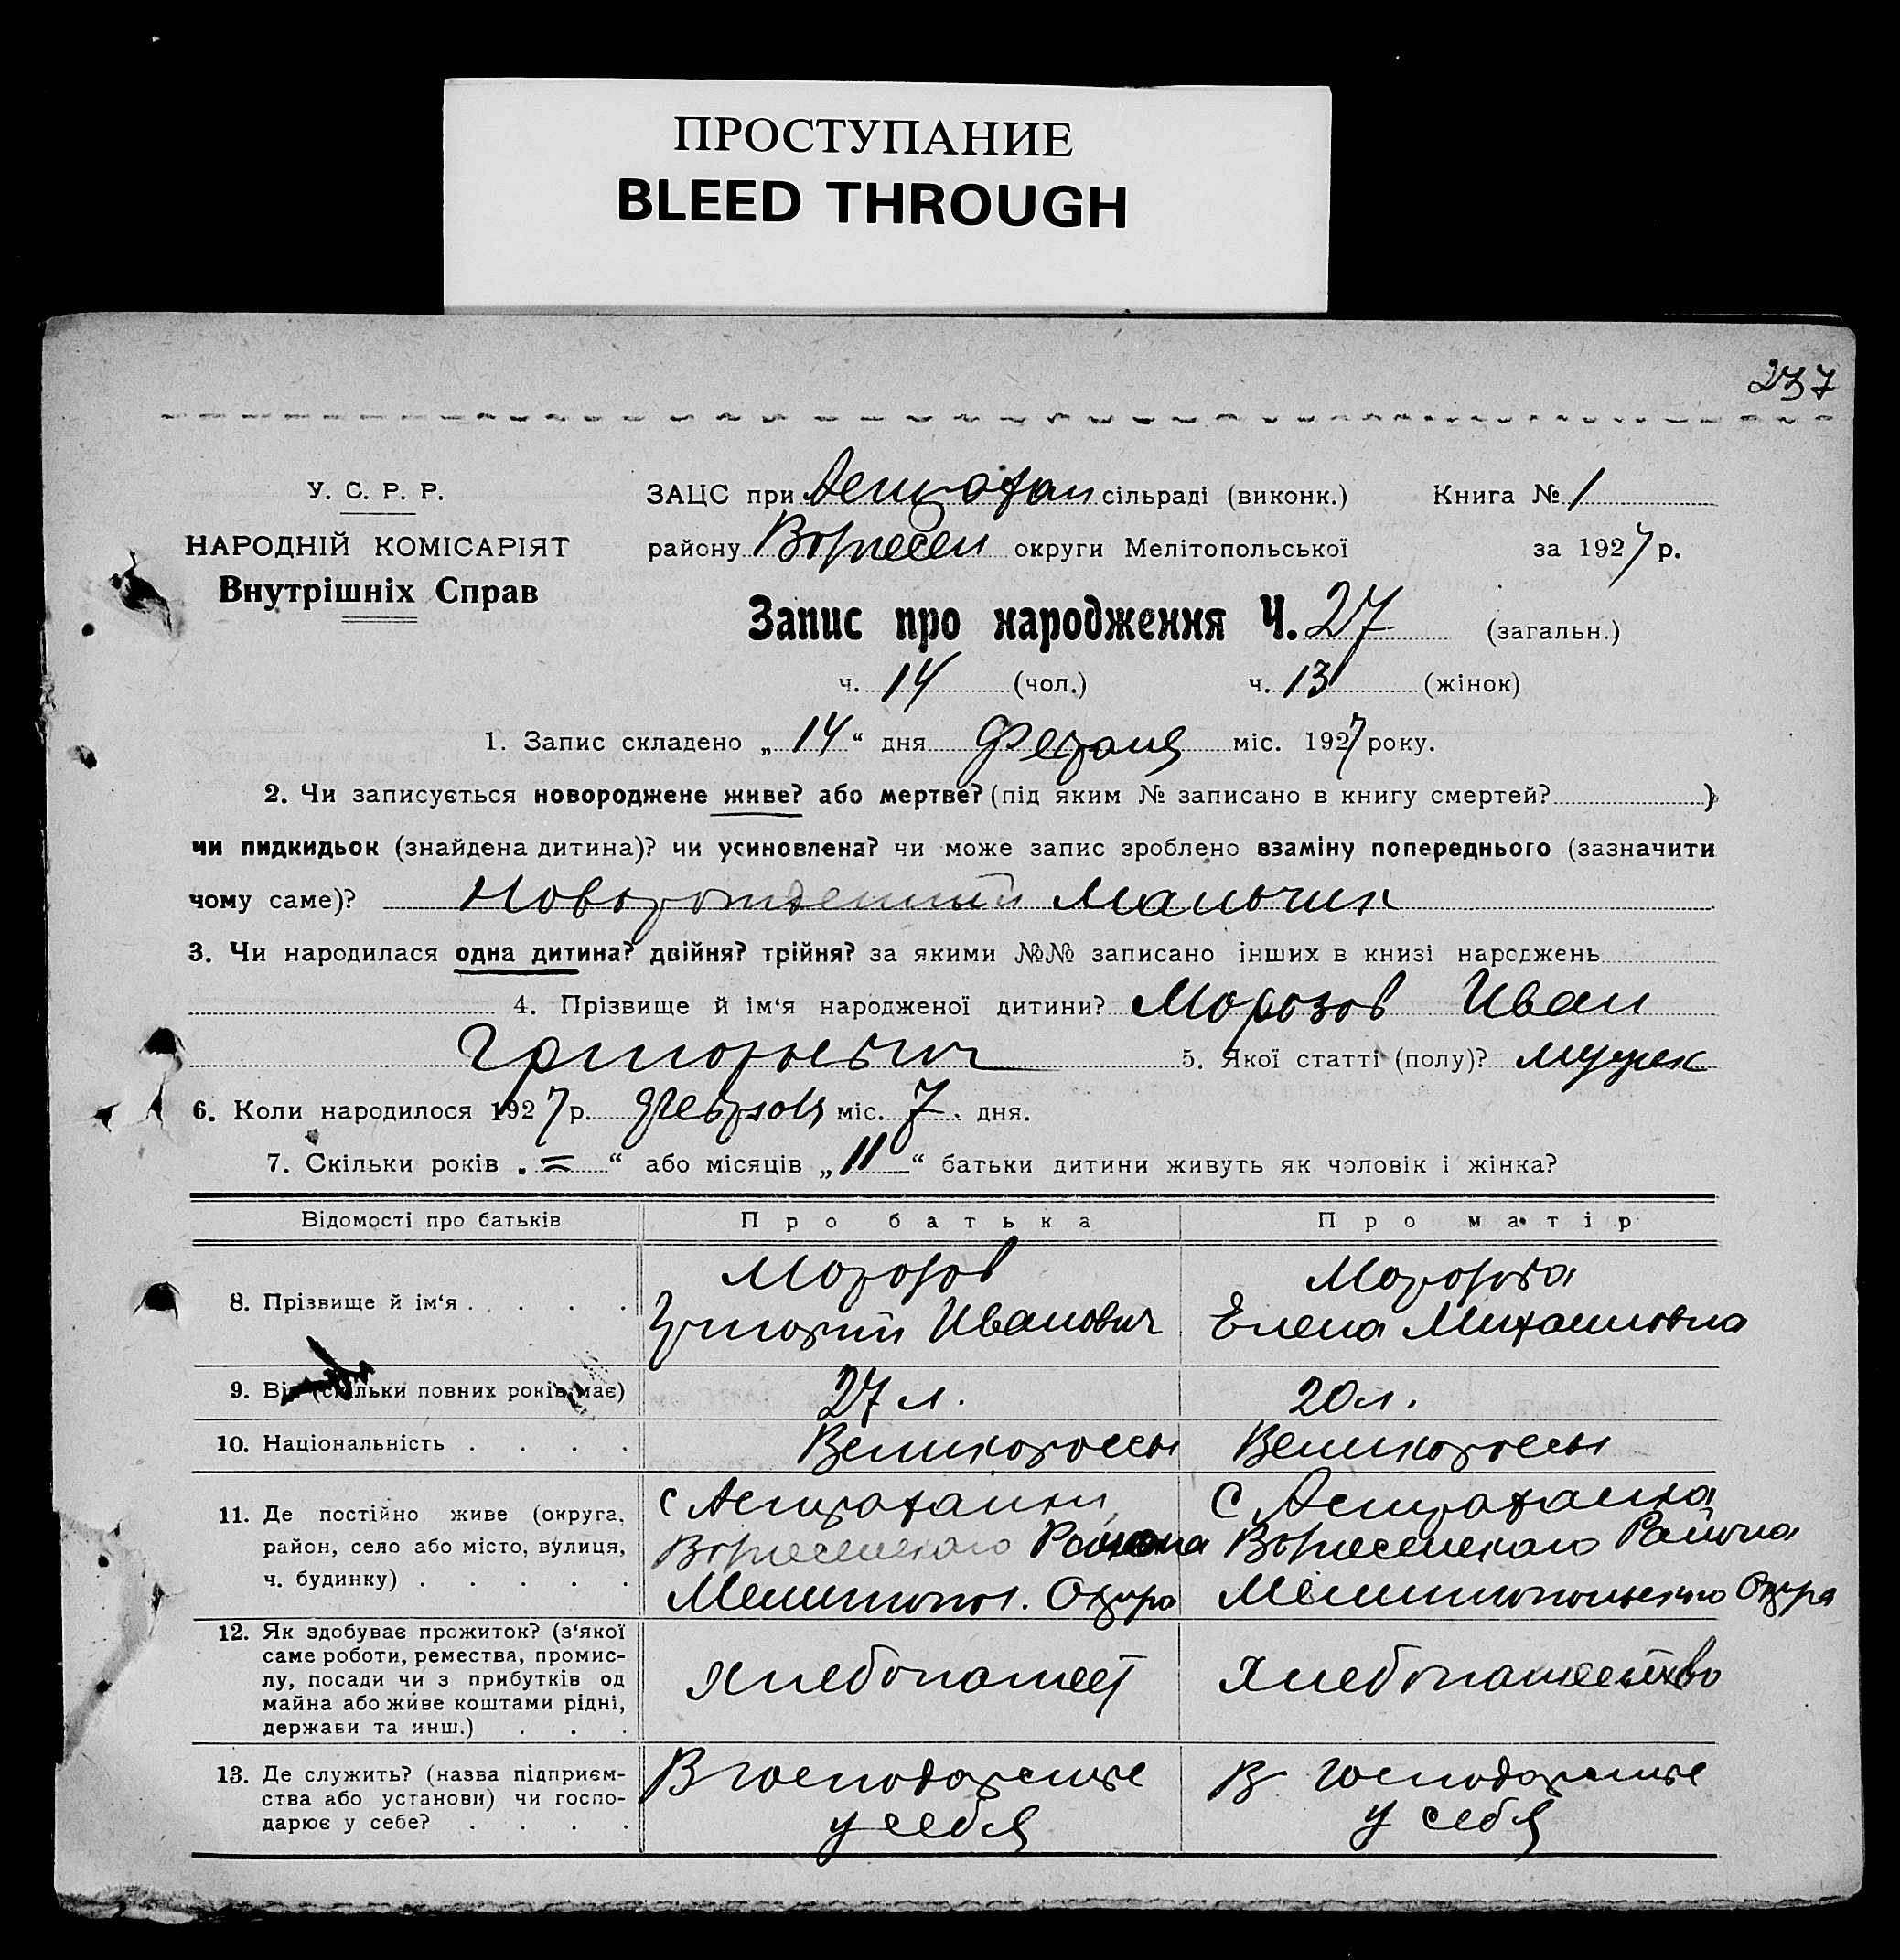 ПРОСТУПАНИЕ
BLEED THROUGH
237
У. С. Р. Р.
НАРОДНІЙ КОМІСАРІЯТ
Внутрішніх Справ
ЗАЦС при Астрахан сільраді (виконк.) Книга № 1
району Вознесен округи Мелітопольської за 1927 р.
Запис про народження Ч. 27 (загальн.)
ч. 14 (чол.) ч. 13 (жінок)
1. Запис складено „ 14 “ дня міс. 1927 року.
2. Чи записується новороджене живе? або мертве? (під яким № записано в книгу смертей? )
чи пидкидьок (знайдена дитина)? чи усиновлена? чи може запис зроблено взаміну попереднього (зазначити
чому саме)? Новорожденний Мальчик
3. Чи народилася одна дитина? двійня? трійня? за якими №№ записано інших в книзі народжень
4. Прізвище й ім‘я народженої дитини? Морозов Иван
Григорьевич 5. Якої статті (полу)? мужск
6. Коли народилося 1927 р. міс. 7. дня.
7. Скільки років „ = “ або місяців „ 11 “ батьки дитини живуть як чоловік і жінка?
Відомості про батьків Про батька Про матір
8. Прізвище й ім‘я . . . . Морозов Григорий Иванович Морозова Елена Михайловна
9. Вік (скільки повних років має) 27 л. 20 л.
10. Національність . . . . Великороссы Великороссы
11. Де постійно живе (округа, с Астраханки С Астраханка
район, село або місто, вулиця, Вознесенскаго Района Вознесенскаго Района
ч. будинку) . . . . . Мелитопол. Округа Мелитопольского Округа
12. Як здобуває прожиток? (з‘якої
саме роботи, ремества, промис-
лу, посади чи з прибутків од Хлебопашест Хлебопашество
майна або живе коштами рідні,
держави та инш.) . . .
13. Де служить? (назва підприєм- В господарстве В господарстве
ства або установи) чи госпо-
дарює у себе? . . . . у себя у себя